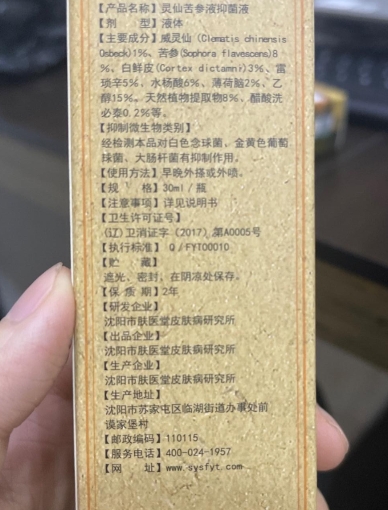 【产品名称】灵仙苦参液抑菌液
【剂　　型】液体
【主要成分】威灵仙（Clematis chinensis
Osbeck)1%、苦参(Sophora flavescens)8
%、白鲜皮(Cortex dictamni)3%、雷
琐辛5%、水杨酸6%、薄荷脑2%、乙
醇15%、天然植物提取物8%、醋酸洗
必泰0.2%等。
【抑制微生物类别】
经检测本品对白色念球菌、金黄色葡萄
球菌、大肠杆菌有抑制作用。
【使用方法】早晚外搽或外喷。
【规　　格】30ml／瓶
【注意事项】详见说明书
【卫生许可证号】
(辽)卫消证字（2017）第A0005号
【执行标准】 Q／FYT00010
【贮　　藏】
遮光、密封，在阴凉处保存。
【保 质 期】2年
【研发企业】
沈阳市肤医堂皮肤病研究所
【出品企业】
沈阳市肤医堂皮肤病研究所
【生产企业】
沈阳市肤医堂皮肤病研究所
【生产地址】
沈阳市苏家屯区临湖街道办事处前
谟家堡村
【邮政编码】110115
【服务电话】400-024-1957
【网　　址】www.sysfyt.com